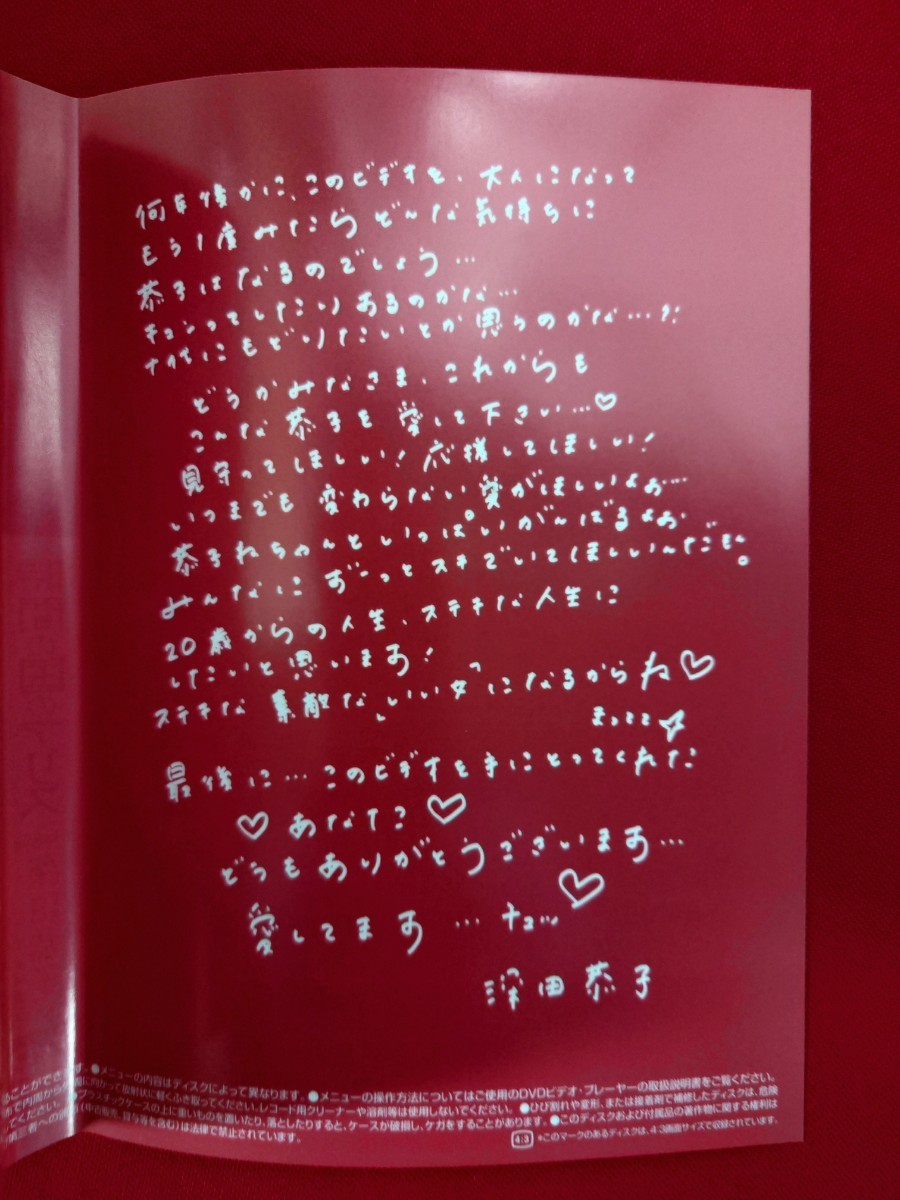 何年後かに、このビデオを、大人になって
もう1度みたらどんな気持ちに
恭子はなるのでしょう…
キュンってしたりあるのかな…
ナタイにもどりたいとか思うのかな…?!
どうかみなさま、これからも
こんな恭子を愛して下さい…♡
見守ってほしい!応援してほしい!
いつまでも変わらない愛がほしいよお…
恭子ねちゃんといっぱいがんばるよお
みんなにずーっとスキでいてほしいんだも。
20歳からの人生、ステキな人生に
したいと思います!
ステキな素敵な「いい女」になるからね♡
まってて☆
最後に…このビデオを手にとってくれた
♡あなた♡
どうもありがとうございます…
愛してます…チュッ♡
深田恭子
ることができます。●メニューの内容はディスクによって異なります。●メニューの操作方法についてはご使用のDVDビデオ・プレーヤーの取扱説明書をご覧ください。
布で内周から外周に向かって放射状に軽くふき取ってください。レコード用クリーナーや溶剤等は使用しないでください。●ひび割れや変形、または接着剤で補修したディスクは、危険
てください。プラスチックケースの上に重いものを置いたり、落としたりすると、ケースが破損し、ケガをすることがあります。●このディスクおよび付属品の著作物に関する権利は
第三者への譲渡(中古販売、貸与等を含む)は法律で禁止されています。
4:3 *このマークのあるディスクは、4:3画面サイズで収録されています。